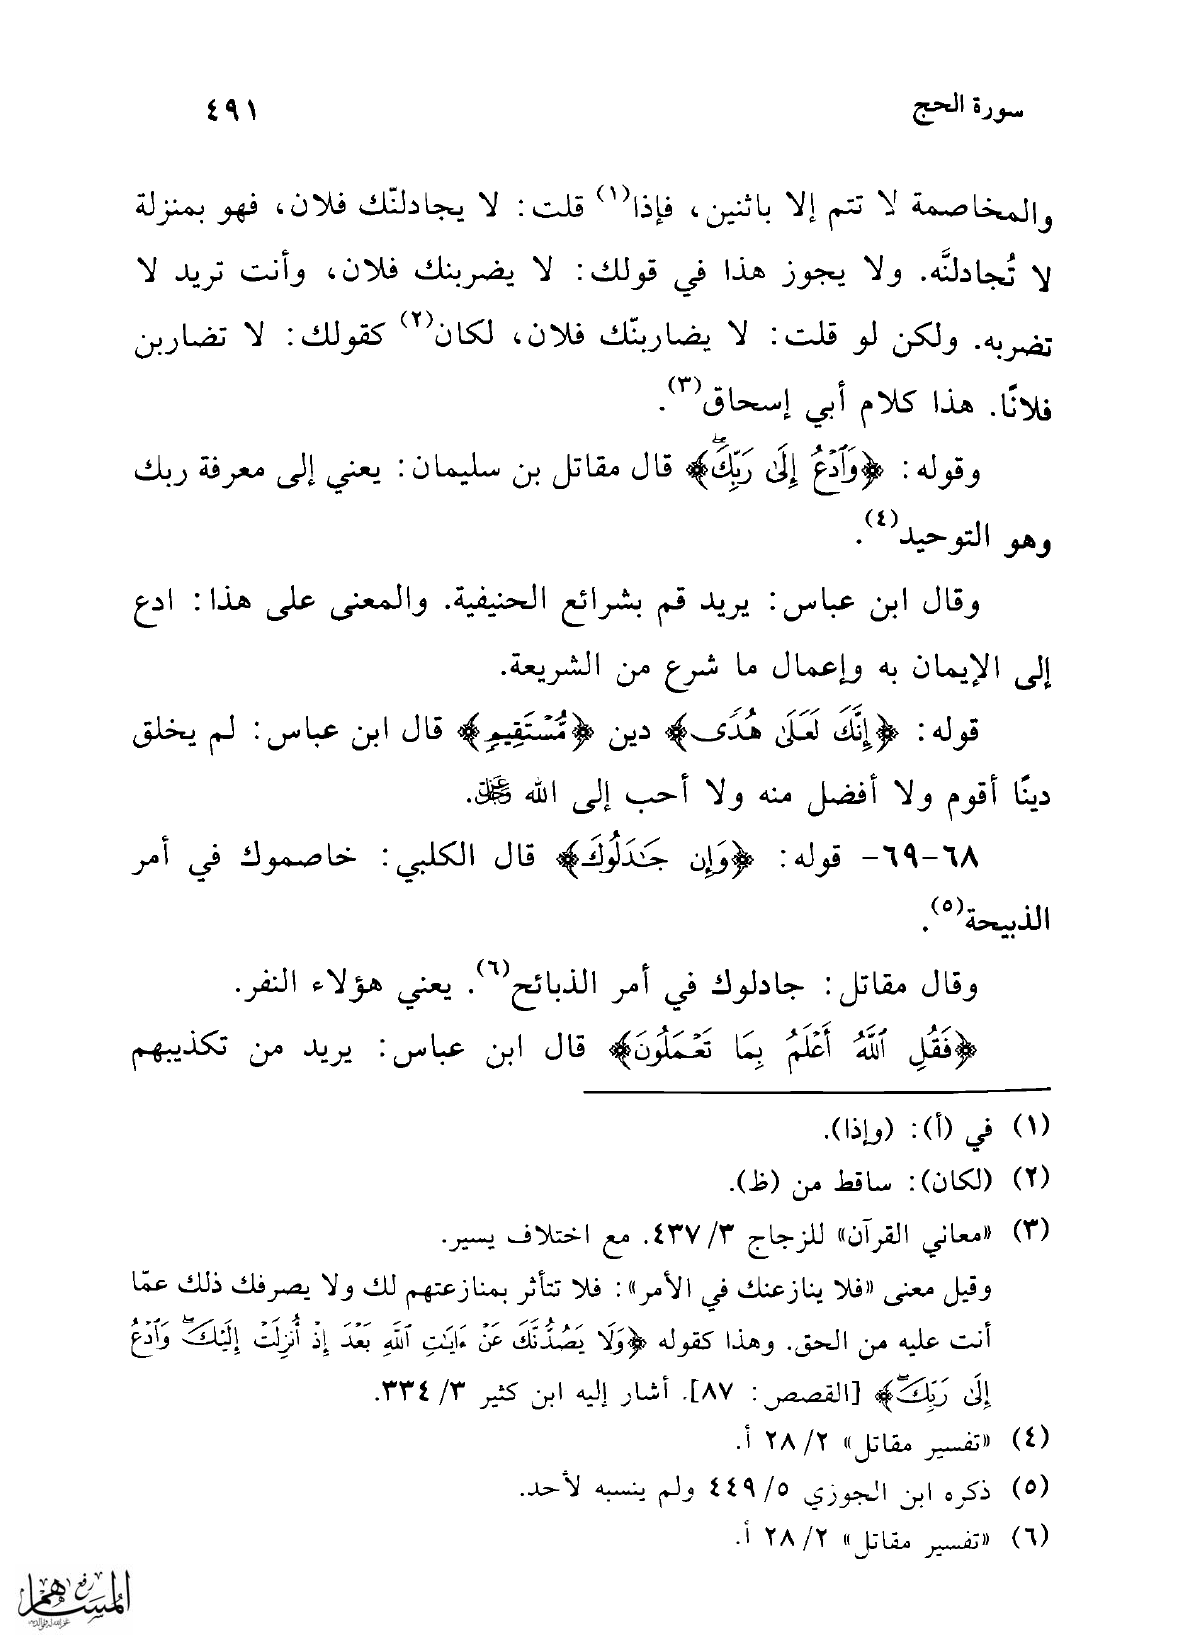 سورة الحج ٤٩١
والمخاصمة لا تتم إلا باثنين، فإذا(١) قلت: لا يجادلنّك فلان، فهو بمنزلة
لا تُجادلنَّه. ولا يجوز هذا في قولك: لا يضربنك فلان، وأنت تريد لا
تضربه. ولكن لو قلت: لا يضاربنّك فلان، لكان(٢) كقولك: لا تضاربن
فلانًا. هذا كلام أبي إسحاق(٣).
وقوله: ﴿وَٱدۡعُ إِلَىٰ رَبِّكَۖ﴾ قال مقاتل بن سليمان: يعني إلى معرفة ربك
وهو التوحيد(٤).
وقال ابن عباس: يريد قم بشرائع الحنيفية. والمعنى على هذا: ادع
إلى الإيمان به وإعمال ما شرع من الشريعة.
قوله: ﴿إِنَّكَ لَعَلَىٰ هُدٗى﴾ دين ﴿مُّسۡتَقِيمٖ﴾ قال ابن عباس: لم يخلق
دينًا أقوم ولا أفضل منه ولا أحب إلى الله عز وجل.
٦٨-٦٩- قوله: ﴿وَإِن جَٰدَلُوكَ﴾ قال الكلبي: خاصموك في أمر
الذبيحة(٥).
وقال مقاتل: جادلوك في أمر الذبائح(٦). يعني هؤلاء النفر.
﴿فَقُلِ ٱللَّهُ أَعۡلَمُ بِمَا تَعۡمَلُونَ﴾ قال ابن عباس: يريد من تكذيبهم
(١) في (أ): (وإذا).
(٢) (لكان): ساقط من (ظ).
(٣) «معاني القرآن» للزجاج ٣/ ٤٣٧. مع اختلاف يسير.
وقيل معنى «فلا ينازعنك في الأمر»: فلا تتأثر بمنازعتهم لك ولا يصرفك ذلك عمّا
أنت عليه من الحق. وهذا كقوله ﴿وَلَا يَصُدُّنَّكَ عَنۡ ءَايَٰتِ ٱللَّهِ بَعۡدَ إِذۡ أُنزِلَتۡ إِلَيۡكَۖ وَٱدۡعُ
إِلَىٰ رَبِّكَۖ﴾ [القصص: ٨٧]. أشار إليه ابن كثير ٣/ ٣٣٤.
(٤) «تفسير مقاتل» ٢/ ٢٨ أ.
(٥) ذكره ابن الجوزي ٥/ ٤٤٩ ولم ينسبه لأحد.
(٦) «تفسير مقاتل» ٢/ ٢٨ أ.
رفع
المساهم